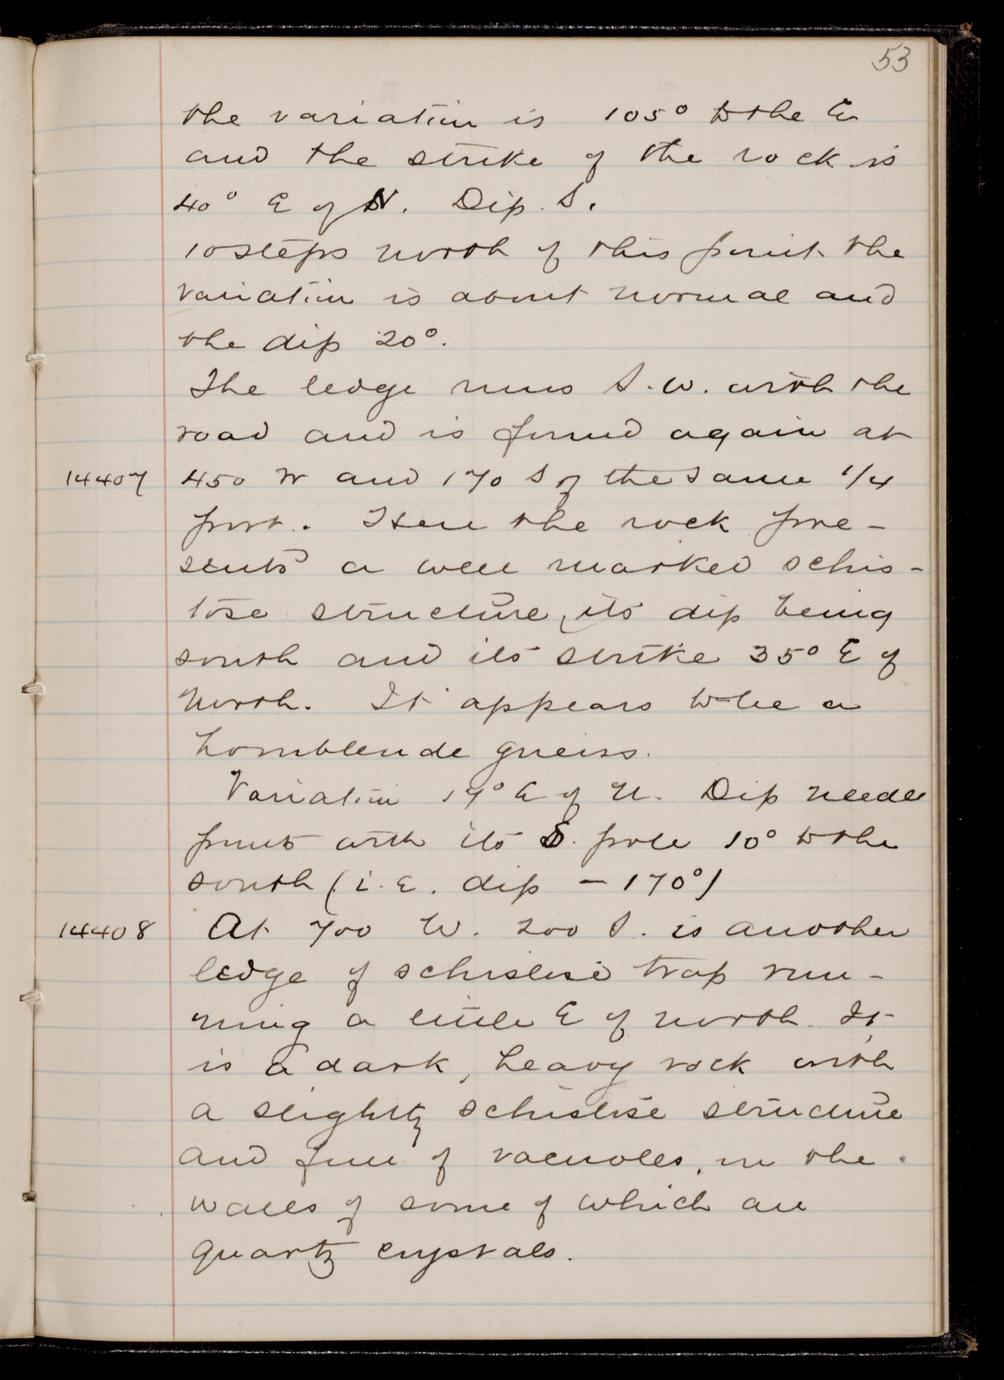 53
the variation is 105° to the E
and the strike of the rock is
40° E of N. Dip S.
10 steps north of this point the
variation is about normal and
the dip 20°.
The ledge runs S.W. with the
road and is found again at
14407 450 W and 170 S of the same 1/4
post. Here the rock pre-
sents a well marked schis-
tose structure, its dip being
south and its strike 35° E of
North. It appears to be a
hornblende gneiss.
Variation 19° E of N. Dip needle
points with its S. pole 10° to the
south (i.e. dip - 170°)
14408 At 700 W. 200 S. is another
ledge of schistose trap run-
ning a little E of north. It
is a dark, heavy rock with
a slightly schistose structure
and full of vacuoles, in the
walls of some of which are
quartz crystals.